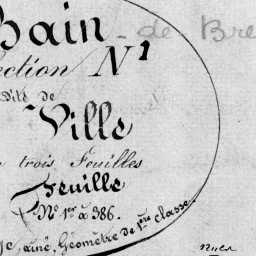 Bain - de Bre
ection N¹
dite de
Ville
trois Feuilles
Feuille
N° 1er à 386.
ainé, Géomètre de 1ère classe